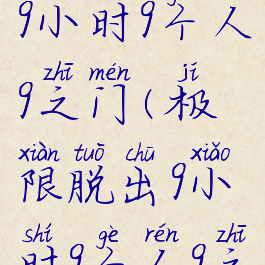 9小时9个人
zhī mén jí
9之门(极
xiàn tuō chū xiǎo
限脱出9小
shí gè rén zhī
时9个人9之